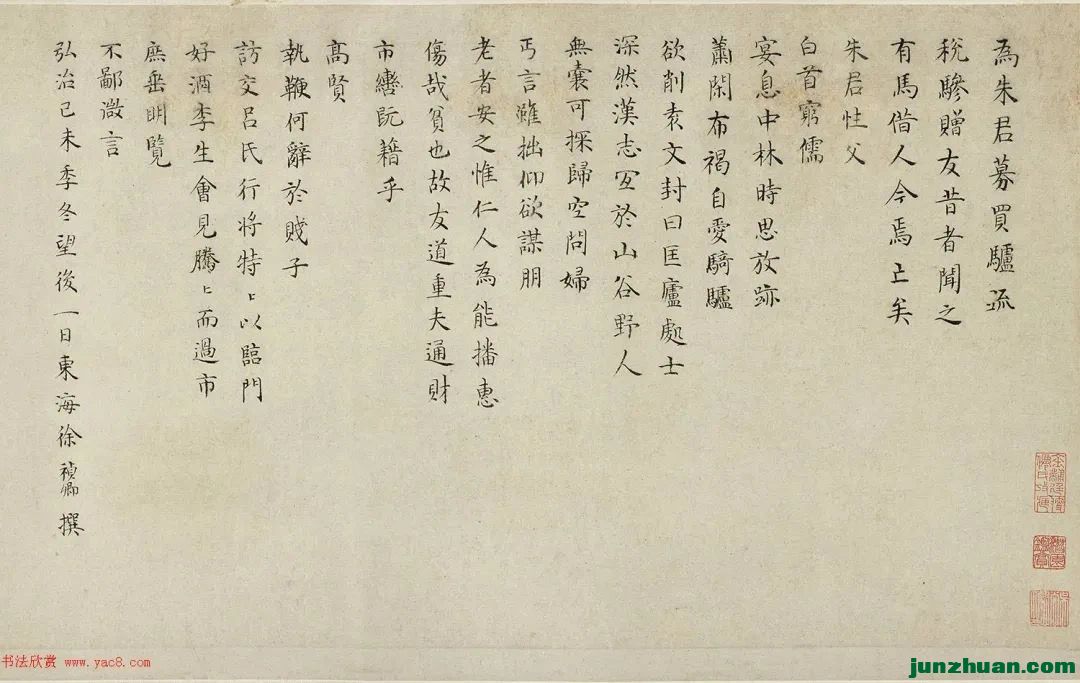 為朱君募買驢疏
稅驂贈友昔者聞之
有馬借人今焉亡矣
朱君性父
白首窮儒
宴息中林時思放跡
蕭閑布褐自愛騎驢
欲削袁文封曰匡廬處士
深然漢志宜於山谷野人
無囊可探歸空問婦
丐言雖拙仰欲謀朋
老者安之惟仁人為能播惠
傷哉貧也故友道重夫通財
市轡阮籍乎
高賢
執鞭何辭於賤子
訪交呂氏行將特〻以臨門
好酒李生會見騰〻而過市
庶垂明覽
不鄙激言
弘治己未季冬望後一日東海徐禎卿撰
书法欣赏 www.yac8.com
junzhuan.com